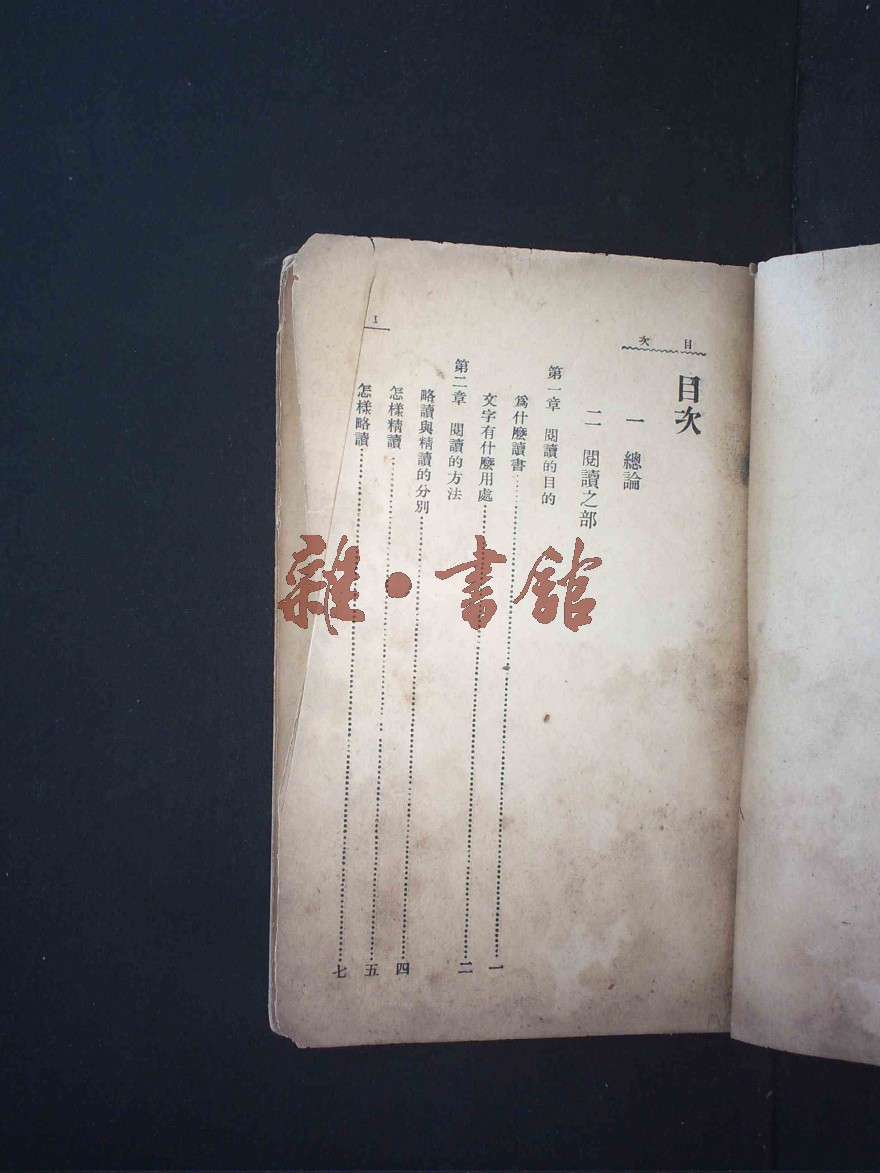 目次
目次
一　總論
二　閱讀之部
第一章　閱讀的目的
爲什麼讀書……一
文字有什麼用處……二
第二章　閱讀的方法
略讀與精讀的分別……四
怎樣精讀……五
怎樣略讀……七
1
雜·書館